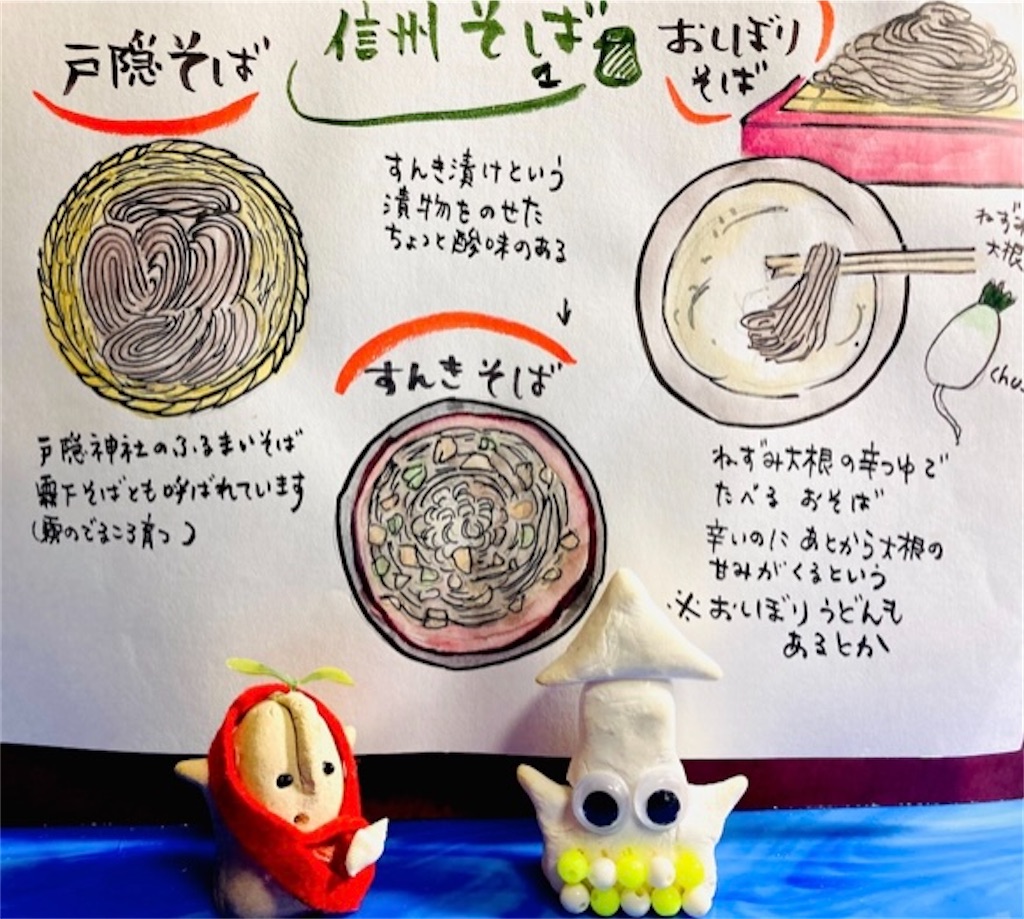 信州そば
1
戸隠そば
戸隠神社のふるまいそば
霧下そばとも呼ばれています
(霧のでるころ育つ)
すんき漬けという
漬物をのせた
ちょっと酸味のある
↓
すんきそば
おしぼり
そば
ねずみ
大根
chu
ねずみ大根の辛つゆで
たべる おそば
辛いのに あとから大根の
甘みがくるという
※おしぼりうどんも
あるとか